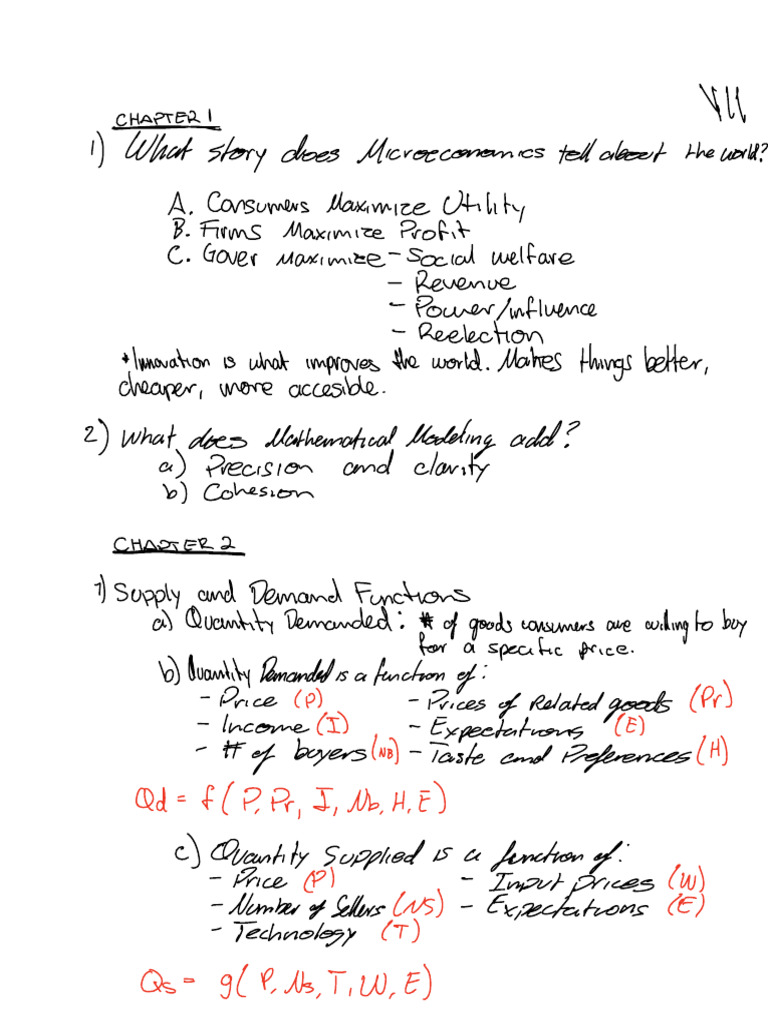 CHAPTER 1
1) What story does Microeconomics tell about the world?
A. Consumers Maximize Utility
B. Firms Maximize Profit
C. Gover Maximize - Social welfare
- Revenue
- Power/influence
- Reelection
*Innovation is what improves the world. Makes things better,
cheaper, more accesible.
2) What does Mathematical Modeling add?
a) Precision and clarity
b) Cohesion
CHAPTER 2
1) Supply and Demand Functions
a) Quantity Demanded: # of goods consumers are willing to buy
for a specific price.
b) Quantity Demanded is a function of:
- Price (P) - Prices of Related goods (Pr)
- Income (I) - Expectations (E)
- # of buyers (NB) - Taste and Preferences (H)
Qd = f(P, Pr, I, Nb, H, E)
c) Quantity Supplied is a function of:
- Price (P) - Input prices (W)
- Number of Sellers (NS) - Expectations (E)
- Technology (T)
Qs = g(P, Ns, T, W, E)